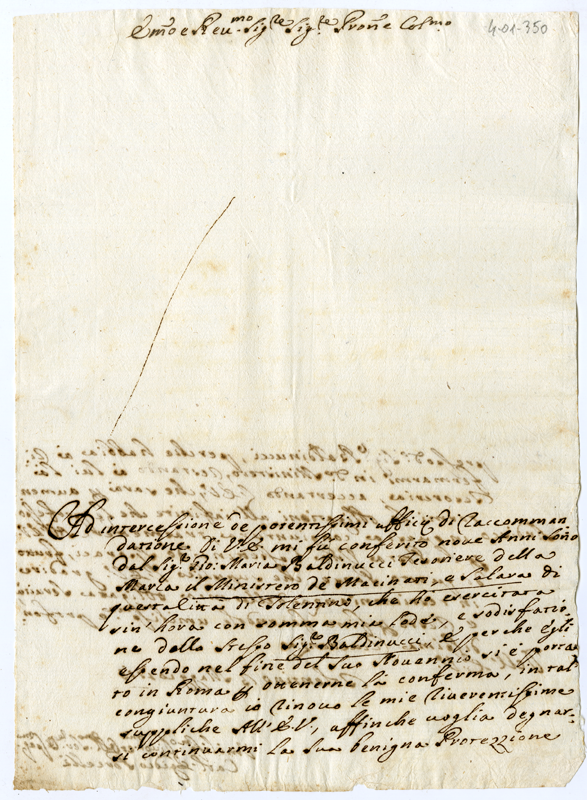 Em̃o e Reu.mo Sig.re Sig.re Pron̄e Col.mo
4-01-350
Ad intercessione de potentissimi ufficij di Raccomman
dazione di V.E. mi fù conferito nove Anni sono
dal Sig.r Gio: Maria Baldinucci Tesoriere della
Marca il Ministero de Macinati, e Salara di
questa Città di Tolentino, che hò esercitata
sin' hora con somma mia lode, e sodisfazio
ne dello stesso Sig.r Baldinucci, E perche egli
essendo nel fine del suo Novannio si è porta
to in Roma p ottenerne la conferma, in tal
congiuntura io rinovo le mie riverentissime
suppliche All' E.V., affinche voglia degnar
si continuarmi la sua benigna Protezzione